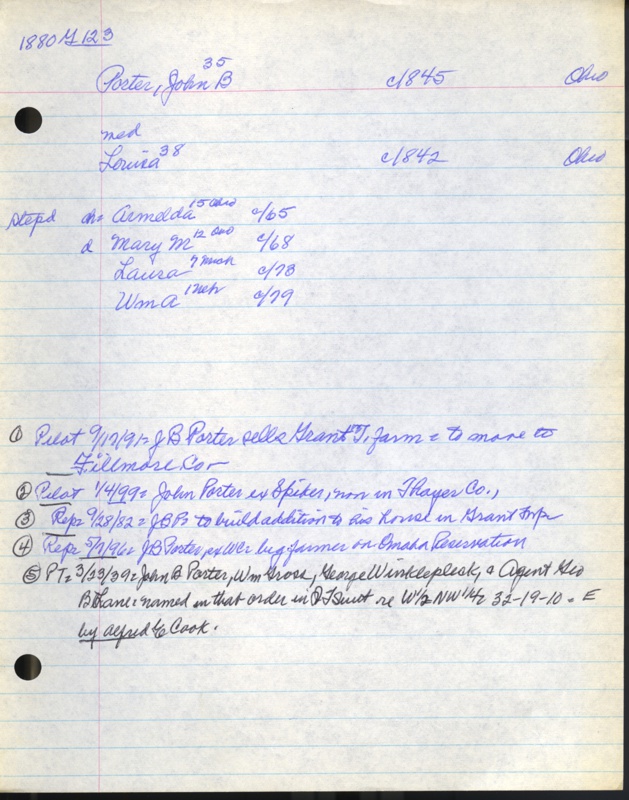 1880 G 123
Porter, John B 35 c/1845 Ohio
md
Louisa 38 c/1842 Ohio
stepd ch= Armelda 15 Ohio c/65
d Mary M 12 Ohio c/68
Laura 7 Nebr c/73
Wm A 1 Nebr c/79
① Pilot 9/17/91= J B Porter sells Grant T. farm = to move to
Fillmore Co-
② Pilot 1/4/99= John Porter ex Spiker, now in Thayer Co.,
③ Rep= 9/28/82= JBP= to build addition to his house in Grant Twp
④ Rep= 5/7/96= J B Porter, ex WC= big farmer on Omaha Reservation
⑤ PT= 3/23/39= John B Porter, Wm Gross, George Winklepleck, & Agent Geo
B Lane= named in that order in QT Suit re W½ NW¼ 32-19-10 = E
by Alfred C Cook.